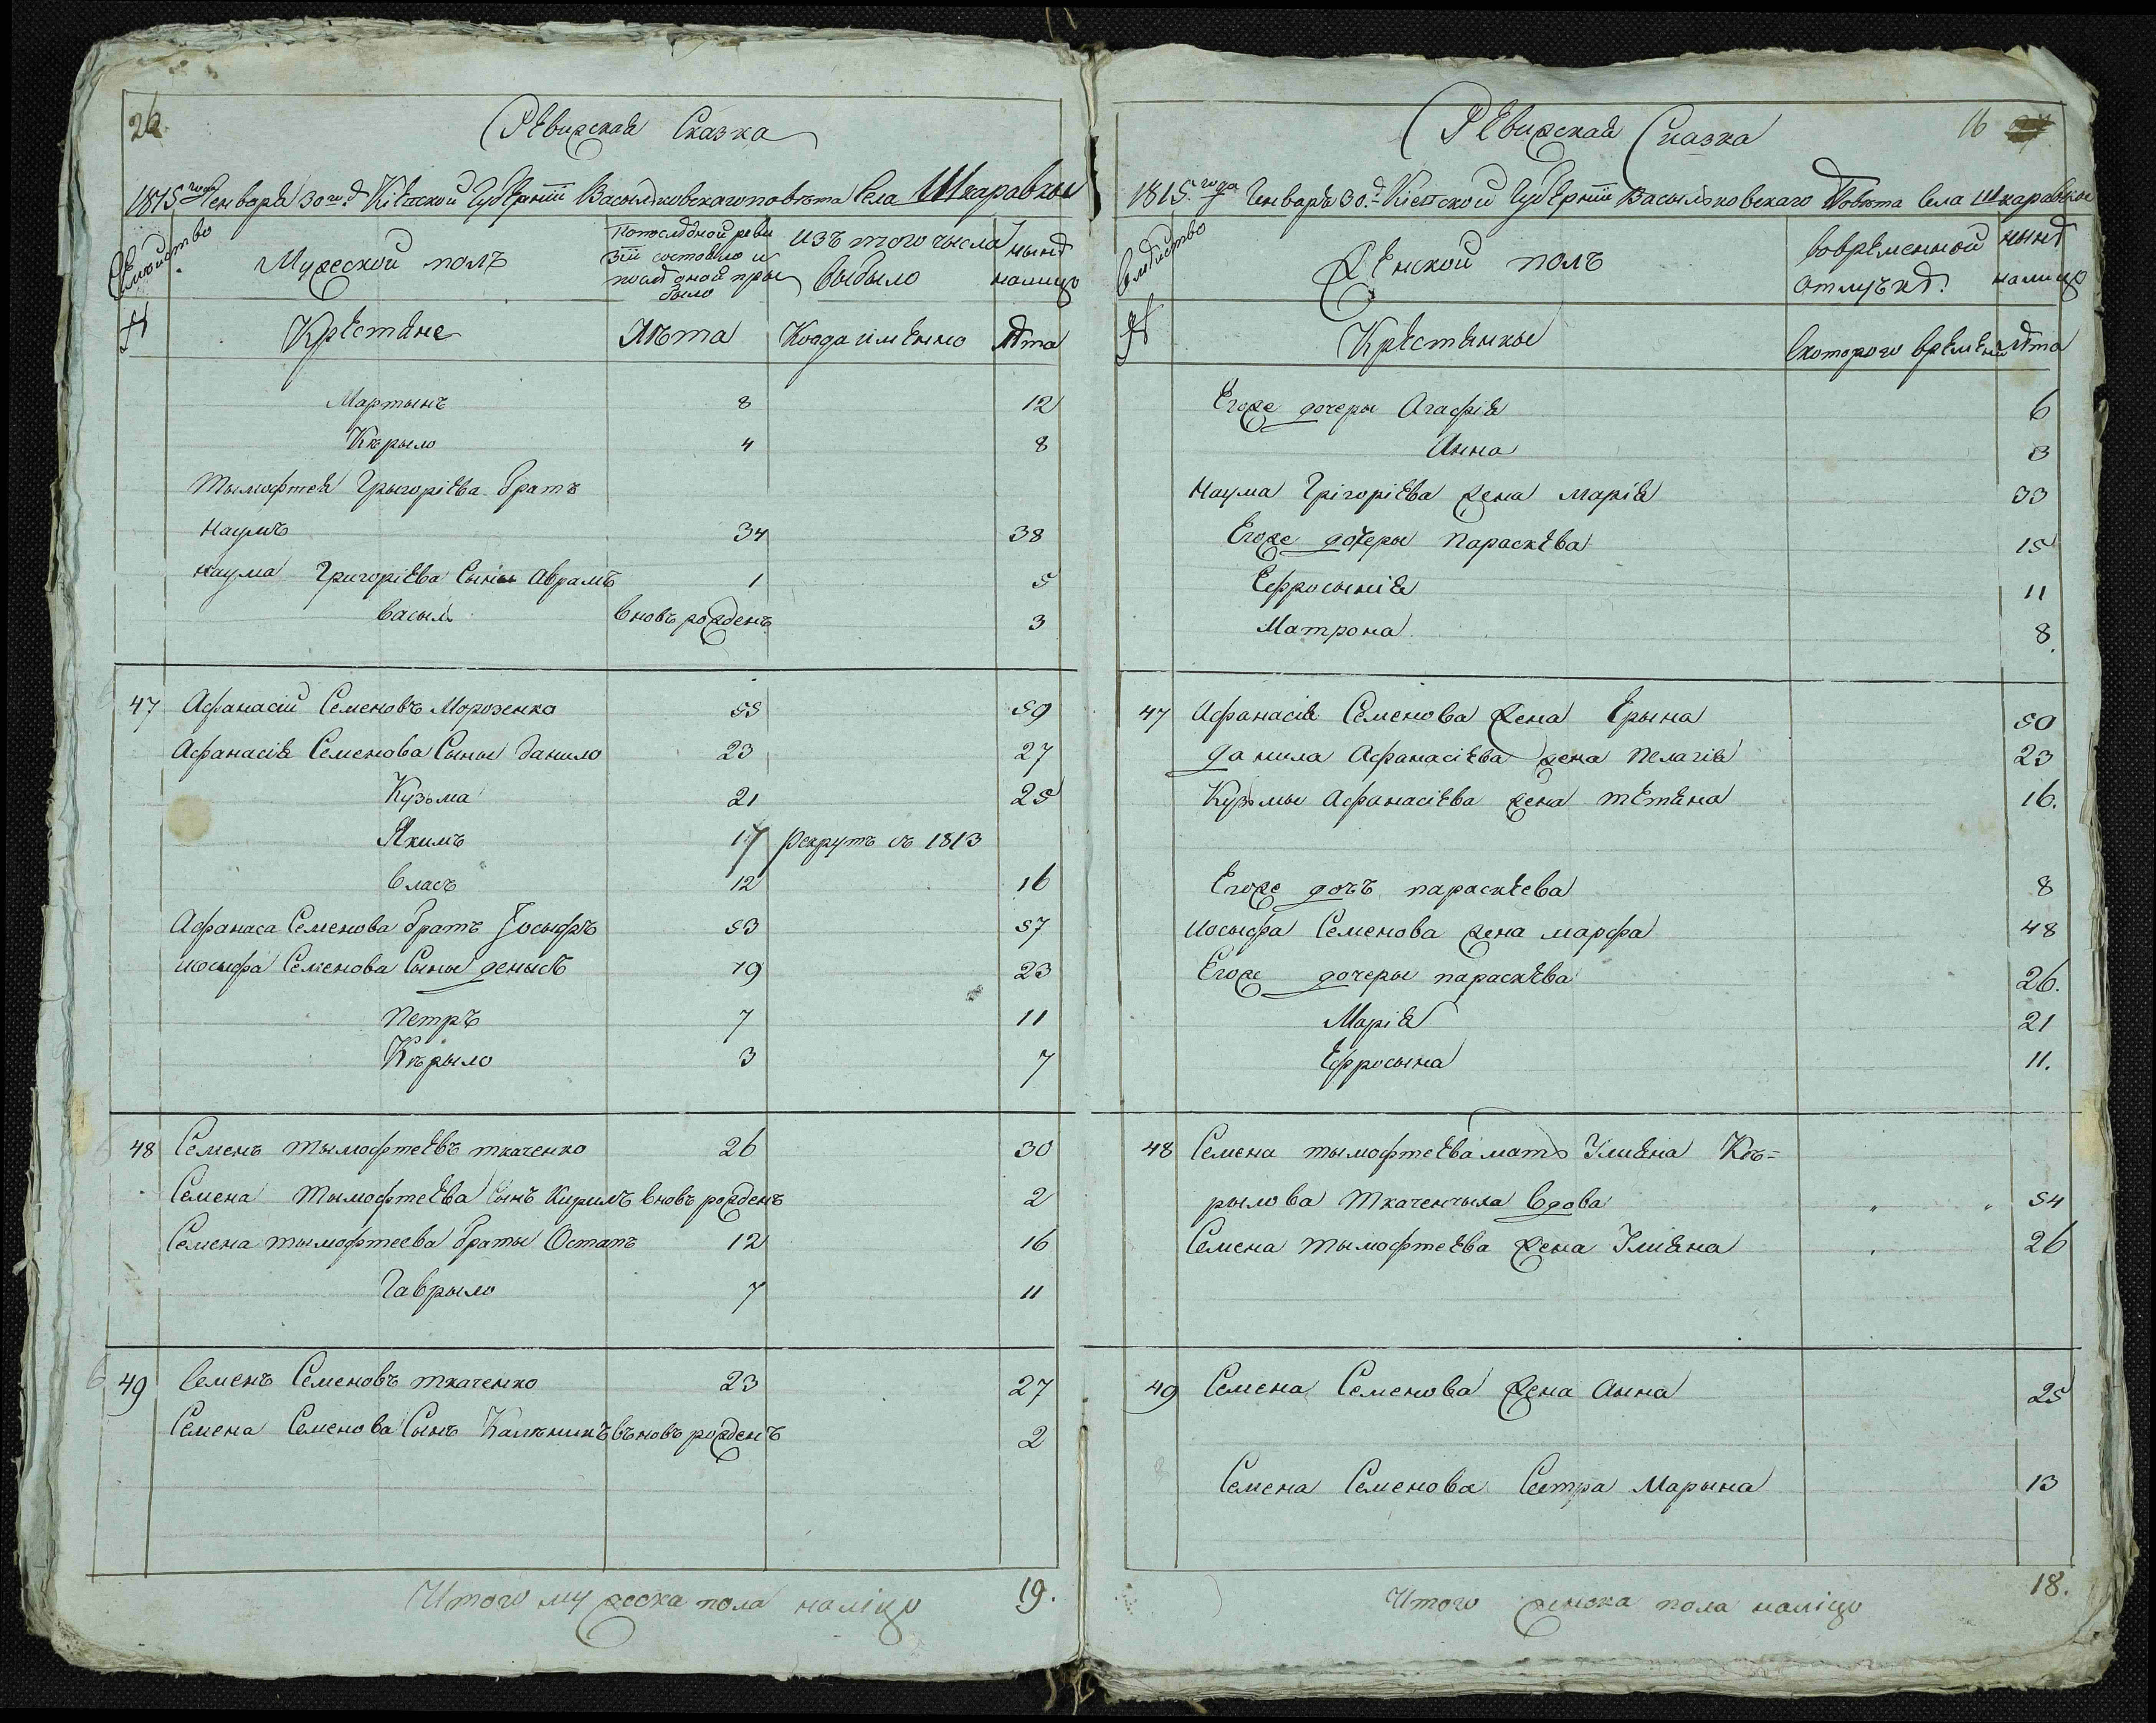 26.
Ревизская Сказка
1815 года Генваря 30го д Кіевской Губерніи Васылковскаго повѣта Села Шкаравкы
Семейство
Мужеской полъ
Попослѣдной реви
зіи состояло и
послѣ оной при
было
изъ того чысла
выбыло
нынѣ
налицо
№
Крестяне
Лѣта
Когда имѣнно
Лѣта
Мартынъ 8 12
Кѣрыло 4 8
Тымофтея Грыгоріева братъ
Наумъ 34 38
Наума Григоріева Сыны Аврамъ 1 5
Васыль вновь рожденъ 3
47 Афанасій Семеновъ Морозенко 55 59
Афанасія Семенова Сыны Данило 23 27
Кузьма 21 25
Якимъ 17 рекрутъ съ 1813
Власъ 12 16
Афанаса Семенова братъ Іосыфъ 53 57
Иосыфа Семенова Сыны Денысъ 19 23
Петръ 7 11
Кѣрыло 3 7
48 Семенъ Тымофтеевъ Ткаченко 26 30
Семена Тымофтеева Сынъ Кирилъ вновъ рожденъ 2
Семена Тымофтеева браты Остапъ 12 16
Гаврыло 7 11
49 Семенъ Семеновъ Ткаченко 23 27
Семена Семенова Сынъ Калѣникъ въновъ рожденъ 2
Итого мужеска пола наліцо 19.
Ревизская Сказка
16
1815. года Генваря 30. д Кіевской Губерніи Васыльковскаго Повѣта Села Шкаравкы
Семѣйство
Женской полъ
вовременной
отлучкѣ.
нынѣ
налицо
№
Крестянкы
Скоторого времени
лѣта
Егоже дочеры Агафія 6
Анна 3
Наума Грігоріева жена Марія 33
Егоже дочеры Параскева 15
Ефросынія 11
Матрона 8.
47 Афанасія Семенова жена Ерына 50
Данила Афанасіева жена Пелагія 23
Кузьмы Афанасіева жена Тетяна 16.
Егоже дочъ Параскѣева 8
Иосыфа Семенова жена Марфа 48
Егоже дочеры Параскева 26.
Марія 21
Ефросына 11.
48 Семена Тымофтеева мать Уліяна Кѣ=
рылова Ткаченчыха Вдова 54
Семена Тымофтеева жена Уліяна 26
49 Семена Семенова жена Анна 25
Семена Семенова Сестра Марына 13
Итого женска пола наліцо 18.